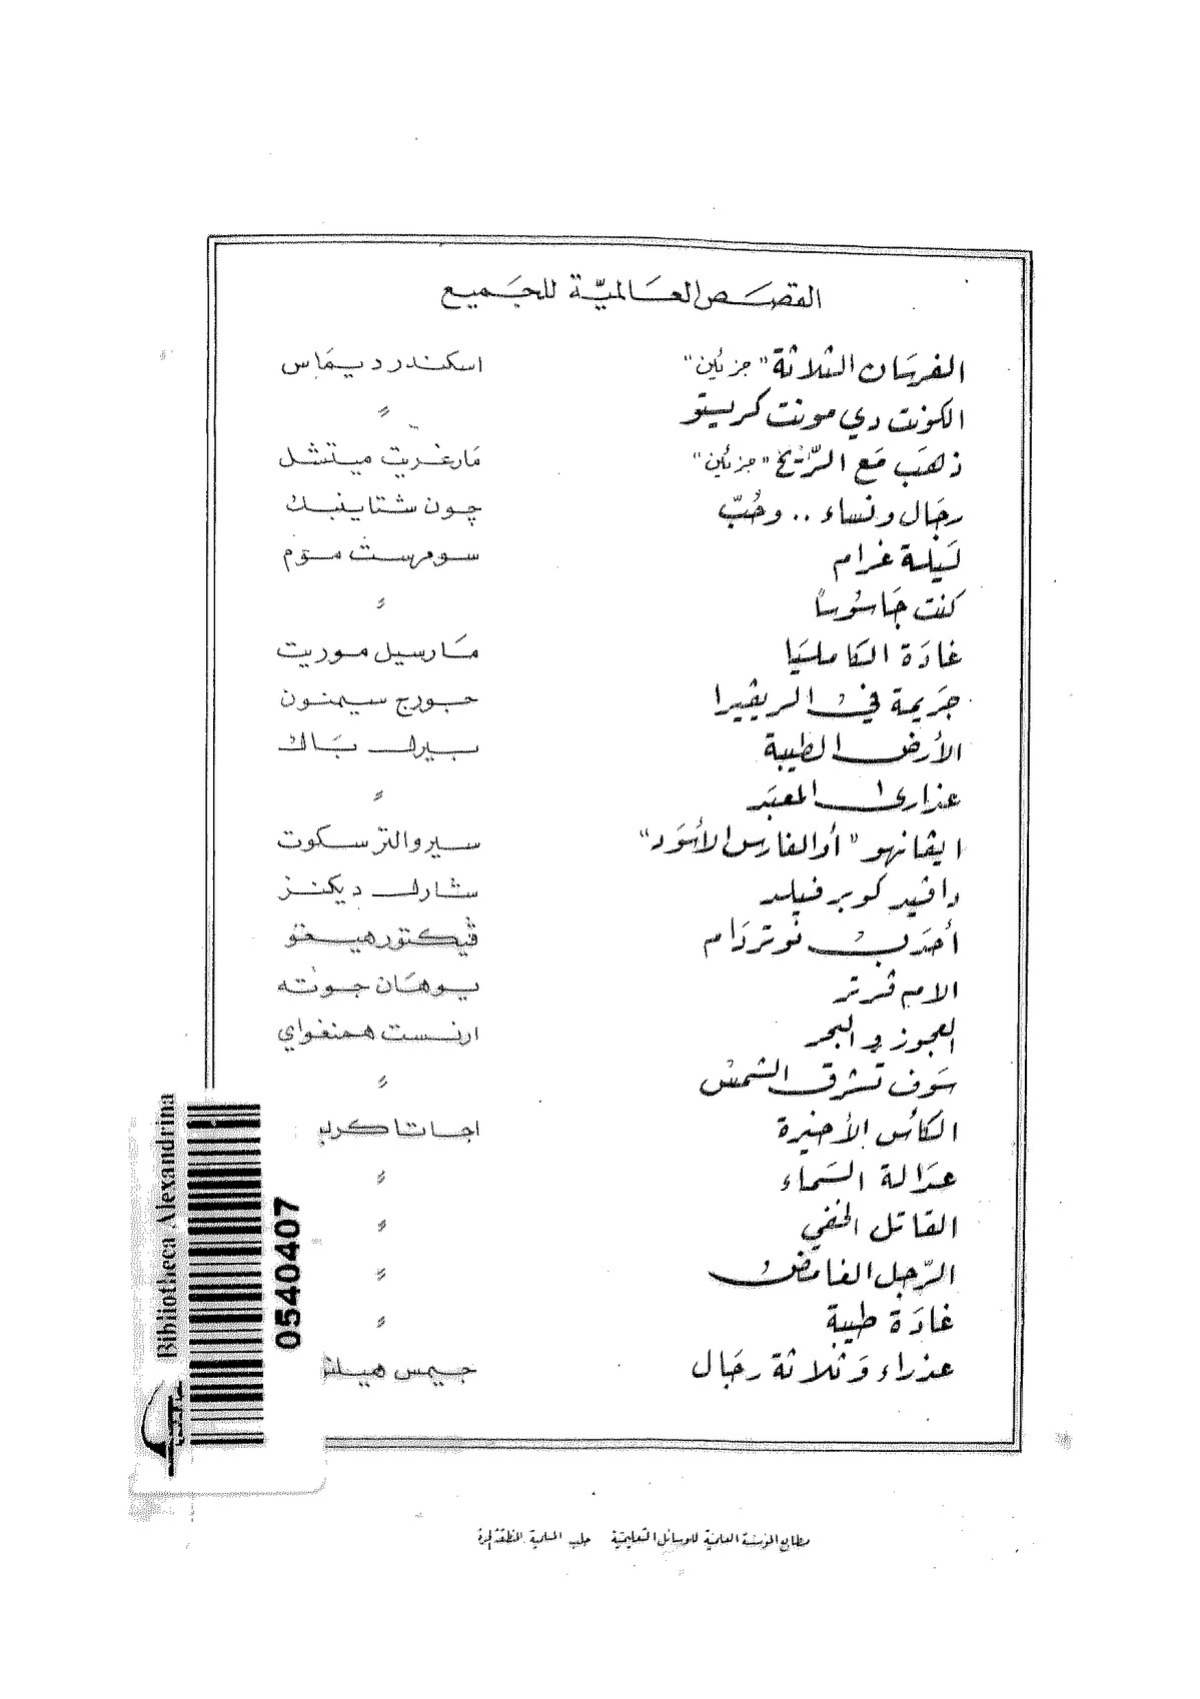 القصص العالمية للجميع
الفرسان الثلاثة "جزئين" اسكندر ديماس
الكونت دي مونت كريستو "
ذهب مع الريح "جزئين" مارغريت ميتشل
رجال ونساء .. وحب جون شتاينبك
ليلة غرام سومرست موم
كنت جاسوسا "
غادة الكامليا مارسيل موريت
جريمة في الريڤيرا جورج سيمنون
الأرض الطيبة بيرل باك
عذارى المعبد "
ايڤانهو "أو الفارس الأسود" سير والتر سكوت
داڤيد كوبرفيلد شارل ديكنز
أحدب نوتردام ڤيكتور هيغو
الام ڤرتر يوهان جوته
العجوز والبحر ارنست همنغواي
سوف تشرق الشمس "
الكأس الأخيرة اجاتا كر
عدالة السماء "
القاتل الخفي "
الرجل الغامض "
غادة طيبة "
عذراء وثلاثة رجال جيمس هيلتو
مطابع المؤسسة العلمية للوسائل التعليمية حلب المسلمية المنطقة الحرة
Bibliotheca Alexandrina
0540407